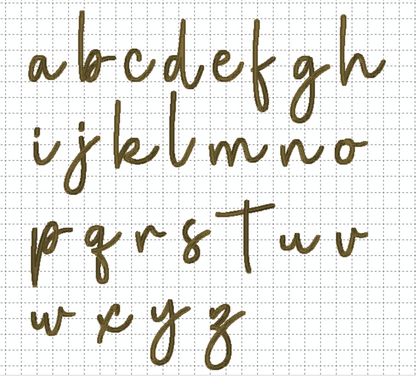 a b c d e f g h
i j k l m n o
p q r s t u v
w x y z